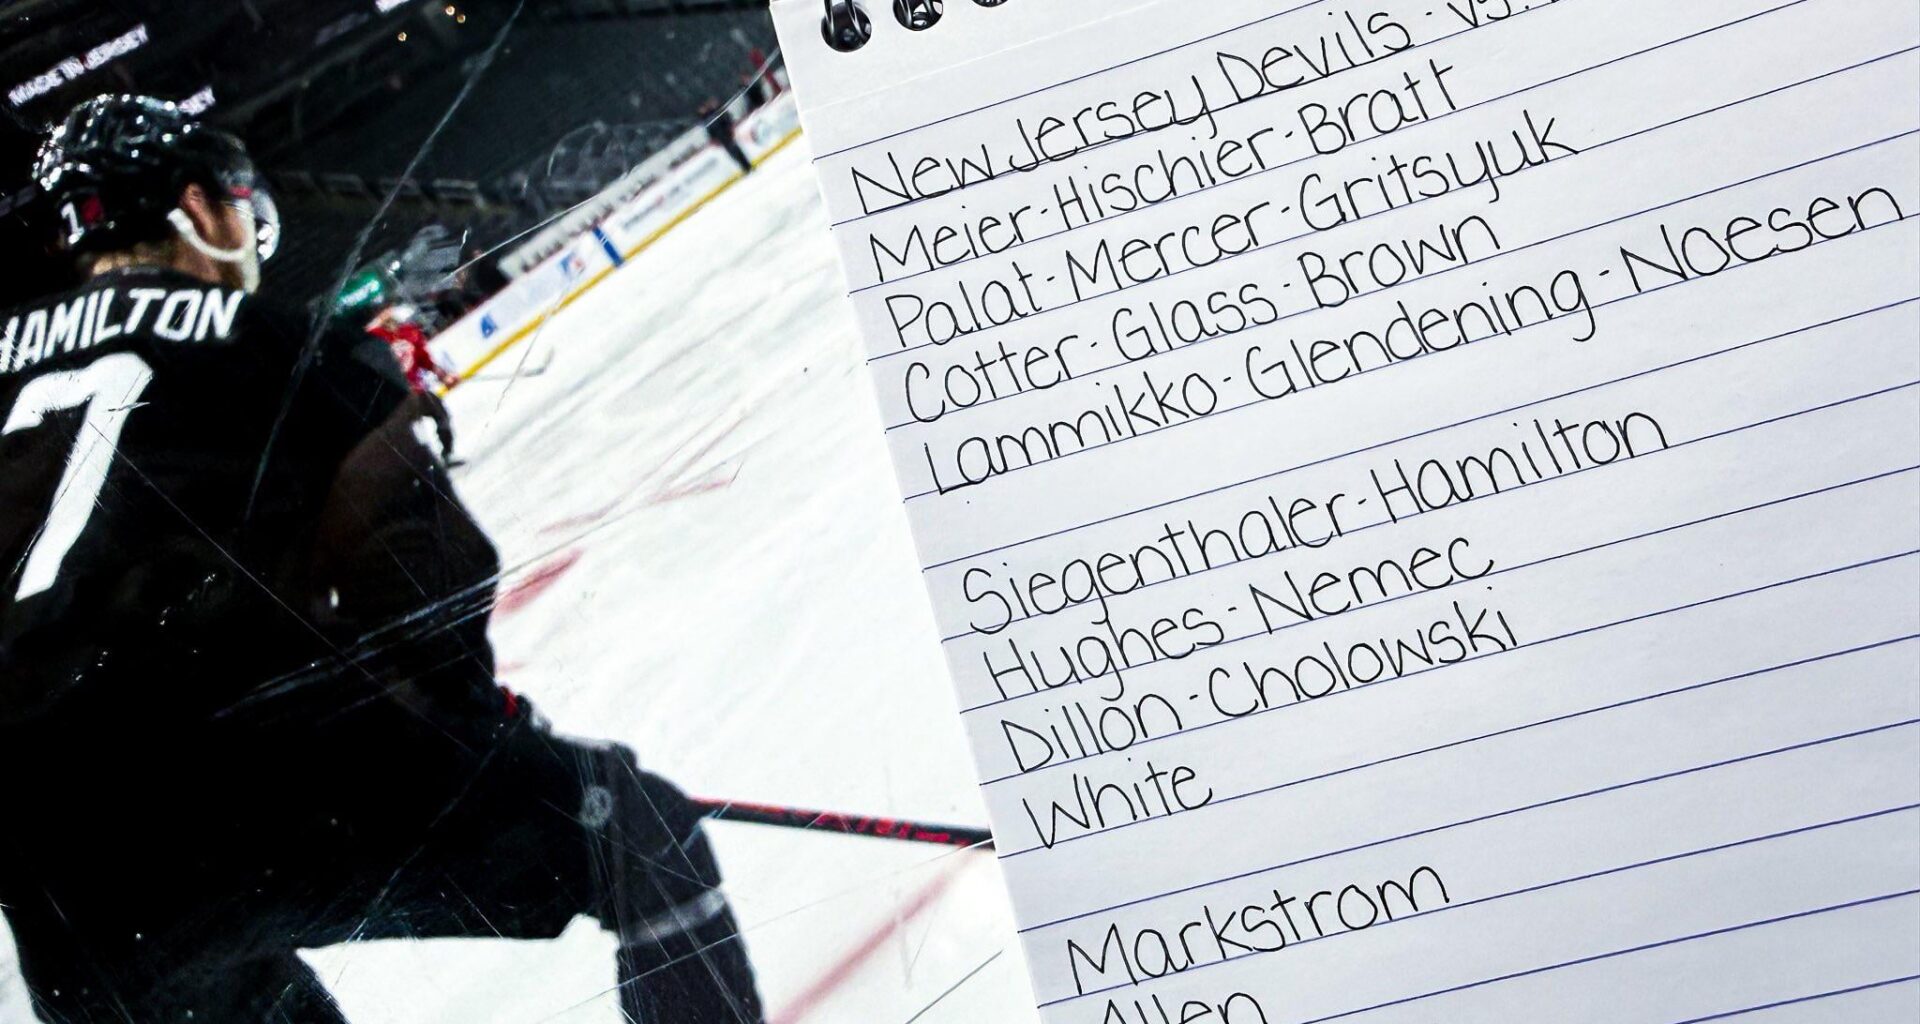 MADE IN JERSEY
HAMILTON
7
New Jersey Devils - vs.
Meier - Hischier - Bratt
Palat - Mercer - Gritsyuk
Cotter - Glass - Brown
Lammikko - Glendening - Noesen
Siegenthaler - Hamilton
Hughes - Nemec
Dillon - Cholowski
White
Markstrom
Allen